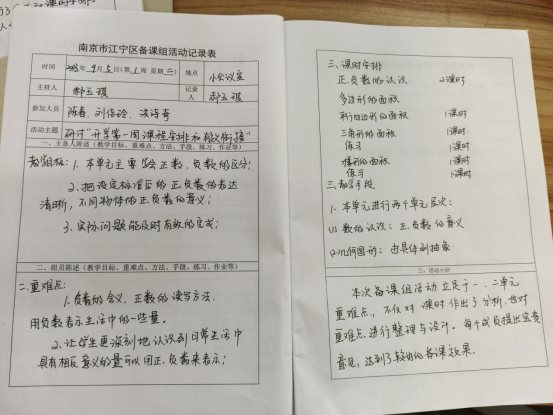 南京市江宁区备课组活动记录表
时间 2023年9月5日(第1周 星期二) 地点 小会议室
主持人 郝玉琪 记录人 郝玉琪
参加人员 陈春、刘倍玲、洪海奇
活动主题 研讨“开学第一周课程安排和相关衔接”
一、主备人陈述（教学目标、重难点、方法、手段、练习、作业等）
教学目标：1. 本单元主要学会正数、负数的区分；
2. 把设定标准后的正负数的表达
清晰，不同物体的正负数的意义；
3. 实际问题能及时有效的完成；
二、组员陈述（教学目标、重难点、方法、手段、练习、作业等）
二.重难点：
1. 负数的含义，正数的读写方法.
用负数表示生活中的一些量。
2. 让学生更深刻地认识到日常生活中
具有相反意义的量可以用正负数来表示；
三、课时安排
正负数的认识 2课时
多边形的面积
平行四边形的面积 1课时
三角形的面积 1课时
练习 1课时
梯形的面积 1课时
练习 1课时
三.教学手段
1. 本单元进行两个单元层次：
(1) 数的认识：正负数的意义
(2) 几何图形：由具体到抽象
三、活动小结
本次备课组活动立足于一、二单元
重难点，不仅对课时作出了分析，也对
重难点进行整理与设计。每个成员提出宝贵
意见，达到了较好的备课效果.